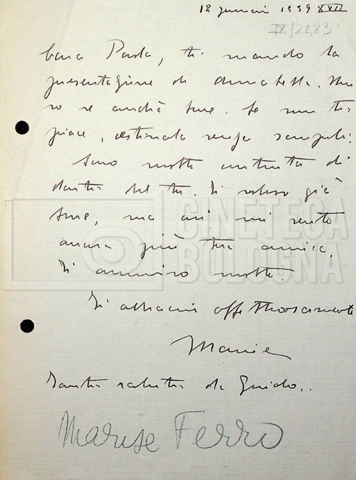 12 gennaio 1939 XVII
IX/2223
Cara Paola, ti mando la
presentazione di Donatella. Spe
ro se andrà bene. Se non ti
piace, cestinala senza scrupoli.
Sono molto contenta di
Ti volevo già
bene, ma ora mi sento
ancora più tua amica.
Ti ammiro molto.
Ti abbraccio affettuosamente
Marise
Tanti saluti da Guido..
Marise Ferro
CINETECA
BOLOGNA